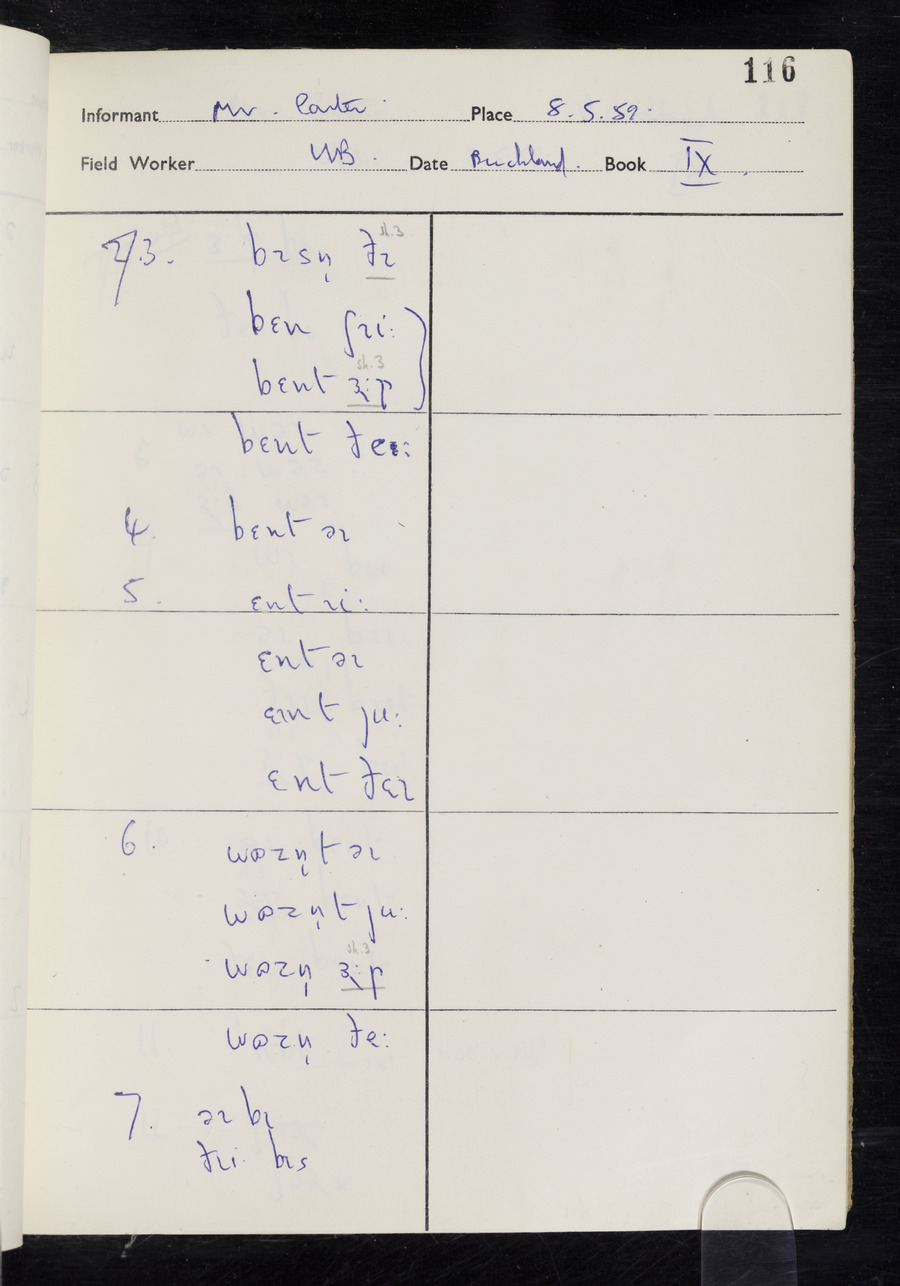 116
Informant Mr. Carter Place 8.5.59.
Field Worker WB. Date Buckland. Book IX
7/3. bɪsn̩ ðɪ sh.3
bɛn ʃɪi:
bɛnt ɜ:ɽ sh.3
bɛnt ðeɪ:
4. bɛnt əɪ
5. ɛnt ɪi:
ɛnt əɪ
ɛɪnt ju:
ɛnt ðɛɪ
6. wɒzn̩t əɪ
wɒzn̩t ju:
wɒzn̩ ɜ:ɽ sh.3
wɒzn̩ ðe:
7. əɪ bɪ
ðɪi bɪs